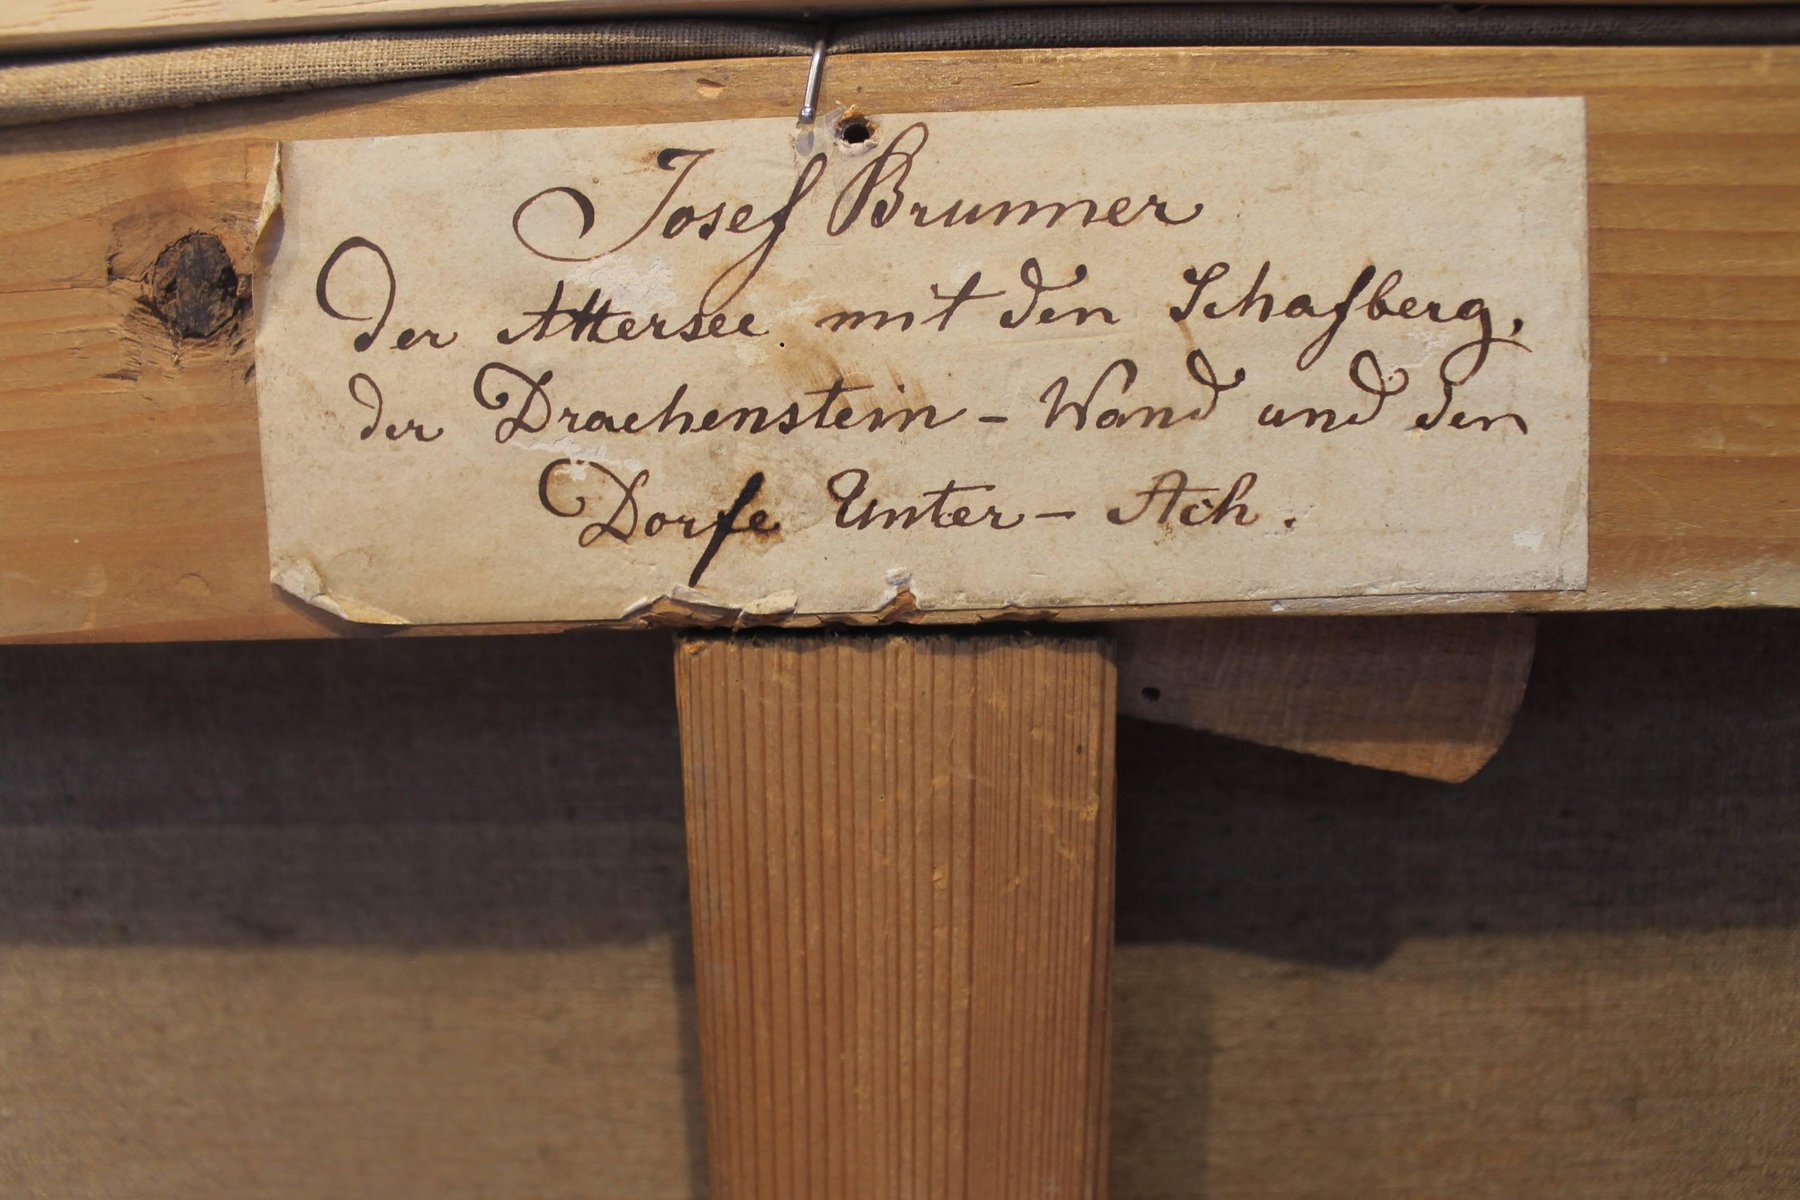 Josef Brunner
Der Attersee mit den Schafberg,
der Drachenstein - Wand und den
Dorfe Unter - Ach.